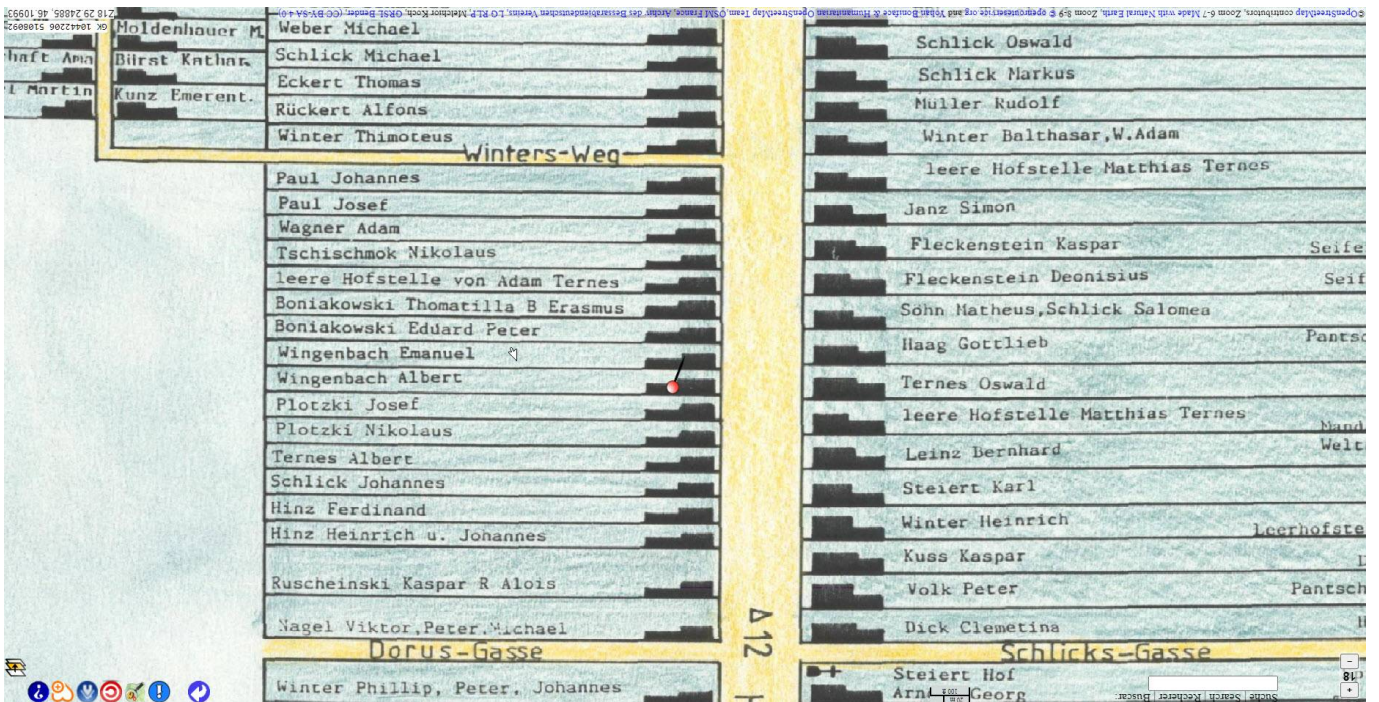 ©OpenStreetMap contributors, Zoom 6-7 Made with Natural Earth, Zoom 5-9 © openrouteservice.org and Yohan Boniface & Humanitarian OpenStreetMap Team, OSM France, Archiv des Bessarabiendeutschen Vereins, LO RLP Melchior Koch, ORSL Bender, (CC BY-SA 4.0)
Z18
Moldenhauer M.
haft Ama
Kunz Emerent.
Weber Michael
Schlick Michael
Eckert Thomas
Rückert Alfons
Winter Thimoteus
Winters-Weg
Paul Johannes
Paul Josef
Wagner Adam
Tschischmok Nikolaus
leere Hofstelle von Adam Ternes
Boniakowski Thomatilla B Erasmus
Boniakowski Eduard Peter
Wingenbach Emanuel
Wingenbach Albert
Plotzki Josef
Plotzki Nikolaus
Ternes Albert
Schlick Johannes
Hinz Ferdinand
Hinz Heinrich u. Johannes
Ruscheinski Kaspar R Alois
Nagel Viktor,Peter,Michael
Dorus-Gasse
Winter Phillip, Peter, Johannes
A 12
Schlick Oswald
Schlick Markus
Müller Rudolf
Winter Balthasar,W.Adam
leere Hofstelle Matthias Ternes
Janz Simon
Fleckenstein Kaspar
Seife
Fleckenstein Deonisius
Seif
Söhn Matheus,Schlick Salomea
Haag Gottlieb
Pantsc
Ternes Oswald
leere Hofstelle Matthias Ternes
Mand
Leinz Bernhard
Welt
Steiert Karl
Winter Heinrich
Leerhofste
Kuss Kaspar
Volk Peter
Pantsch
Dick Clemetina
Schlicks-Gasse
Steiert Hof
Georg
Suche | Search | Recherer | Buscar:
18